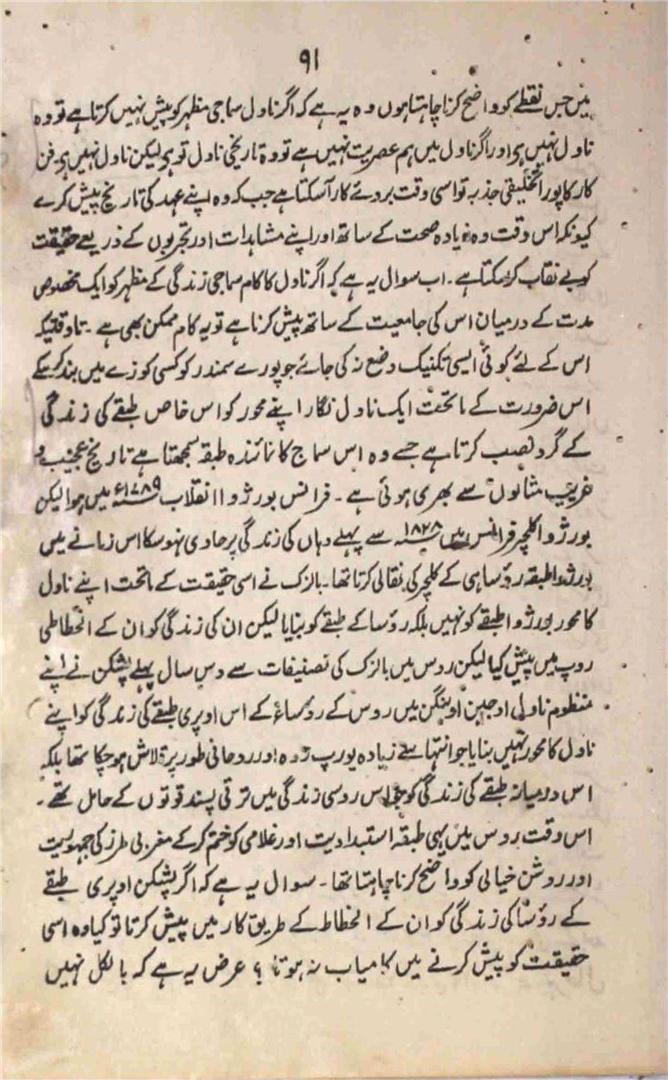 ۹۱
میں جس نقطے کو واضح کرنا چاہتا ہوں وہ یہ ہے کہ اگر ناول سماجی مظہر کو پیش نہیں کرتا ہے تو وہ
ناول نہیں ہے اور اگر ناول میں ہم عصریت نہیں ہے تو وہ تاریخی ناول تو ہے لیکن ناول نہیں ہے فن
کار کا پورا تخلیقی جذبہ تو اسی وقت بروئے کار آسکتا ہے جب کہ وہ اپنے عہد کی تاریخ پیش کرے
کیونکہ اس وقت وہ زیادہ صحت کے ساتھ اور اپنے مشاہدات اور تجربوں کے ذریعے حقیقت
کو بے نقاب کرسکتا ہے ۔ اب سوال یہ ہے کہ اگر ناول کا کام سماجی زندگی کے مظہر کو ایک مخصوص
مدت کے درمیان اس کی جامعیت کے ساتھ پیش کرنا ہے تو یہ کام ممکن بھی ہے ۔ تاوقتیکہ
اس کے لئے کوئی ایسی تکنیک وضع نہ کی جائے جو پورے سمندر کو کسی کوزے میں بند کرسکے
اس ضرورت کے ماتحت ایک ناول نگار اپنے محور کو اس خاص طبقے کی زندگی
کے گرد نصب کرتا ہے جسے وہ اس سماج کا نمائندہ طبقہ سمجھتا ہے تاریخ عجیب و
غریب مثالوں سے بھری ہوئی ہے ۔ فرانس بورژوا انقلاب ۱۷۸۹ء میں ہوا لیکن
بورژوا کلچر فرانس میں ۱۸۲۸ سے پہلے وہاں کی زندگی پر حاوی نہوسکا اس زمانے میں
بورژوا طبقہ رؤسا ہی کے کلچر کی نقالی کرتا تھا ۔ بالزک نے اسی حقیقت کے ماتحت اپنے ناول
کا محور بورژوا طبقے کو نہیں بلکہ رؤسا کے طبقے کو بنایا لیکن ان کی زندگی کو ان کے انحطاطی
روپ میں پیش کیا لیکن روس میں بالزک کی تصنیفات سے دس سال پہلے پشکن نے اپنے
منظوم ناول اوجین اونیگن میں روس کے رؤساء کے اس اوپری طبقے کی زندگی کو اپنے
ناول کا محور نہیں بنایا جو انتہا سے زیادہ یورپ زدہ اور روحانی طور پر قلاش ہوچکا تھا بلکہ
اس درمیانہ طبقے کی زندگی کو جو اس روسی زندگی میں ترقی پسند قوتوں کے حامل تھے ۔
اس وقت روس میں یہی طبقہ استبدادیت اور غلامی کو ختم کرکے مغربی طرز کی جمہوریت
اور روشن خیالی کو واضح کرنا چاہتا تھا ۔ سوال یہ ہے کہ اگر پشکن اوپری طبقے
کے رؤسا کی زندگی کو ان کے انحطاط کے طریق کار میں پیش کرتا تو کیا وہ اسی
حقیقت کو پیش کرنے میں کامیاب نہ ہوتا ؟ عرض یہ ہے کہ بالکل نہیں